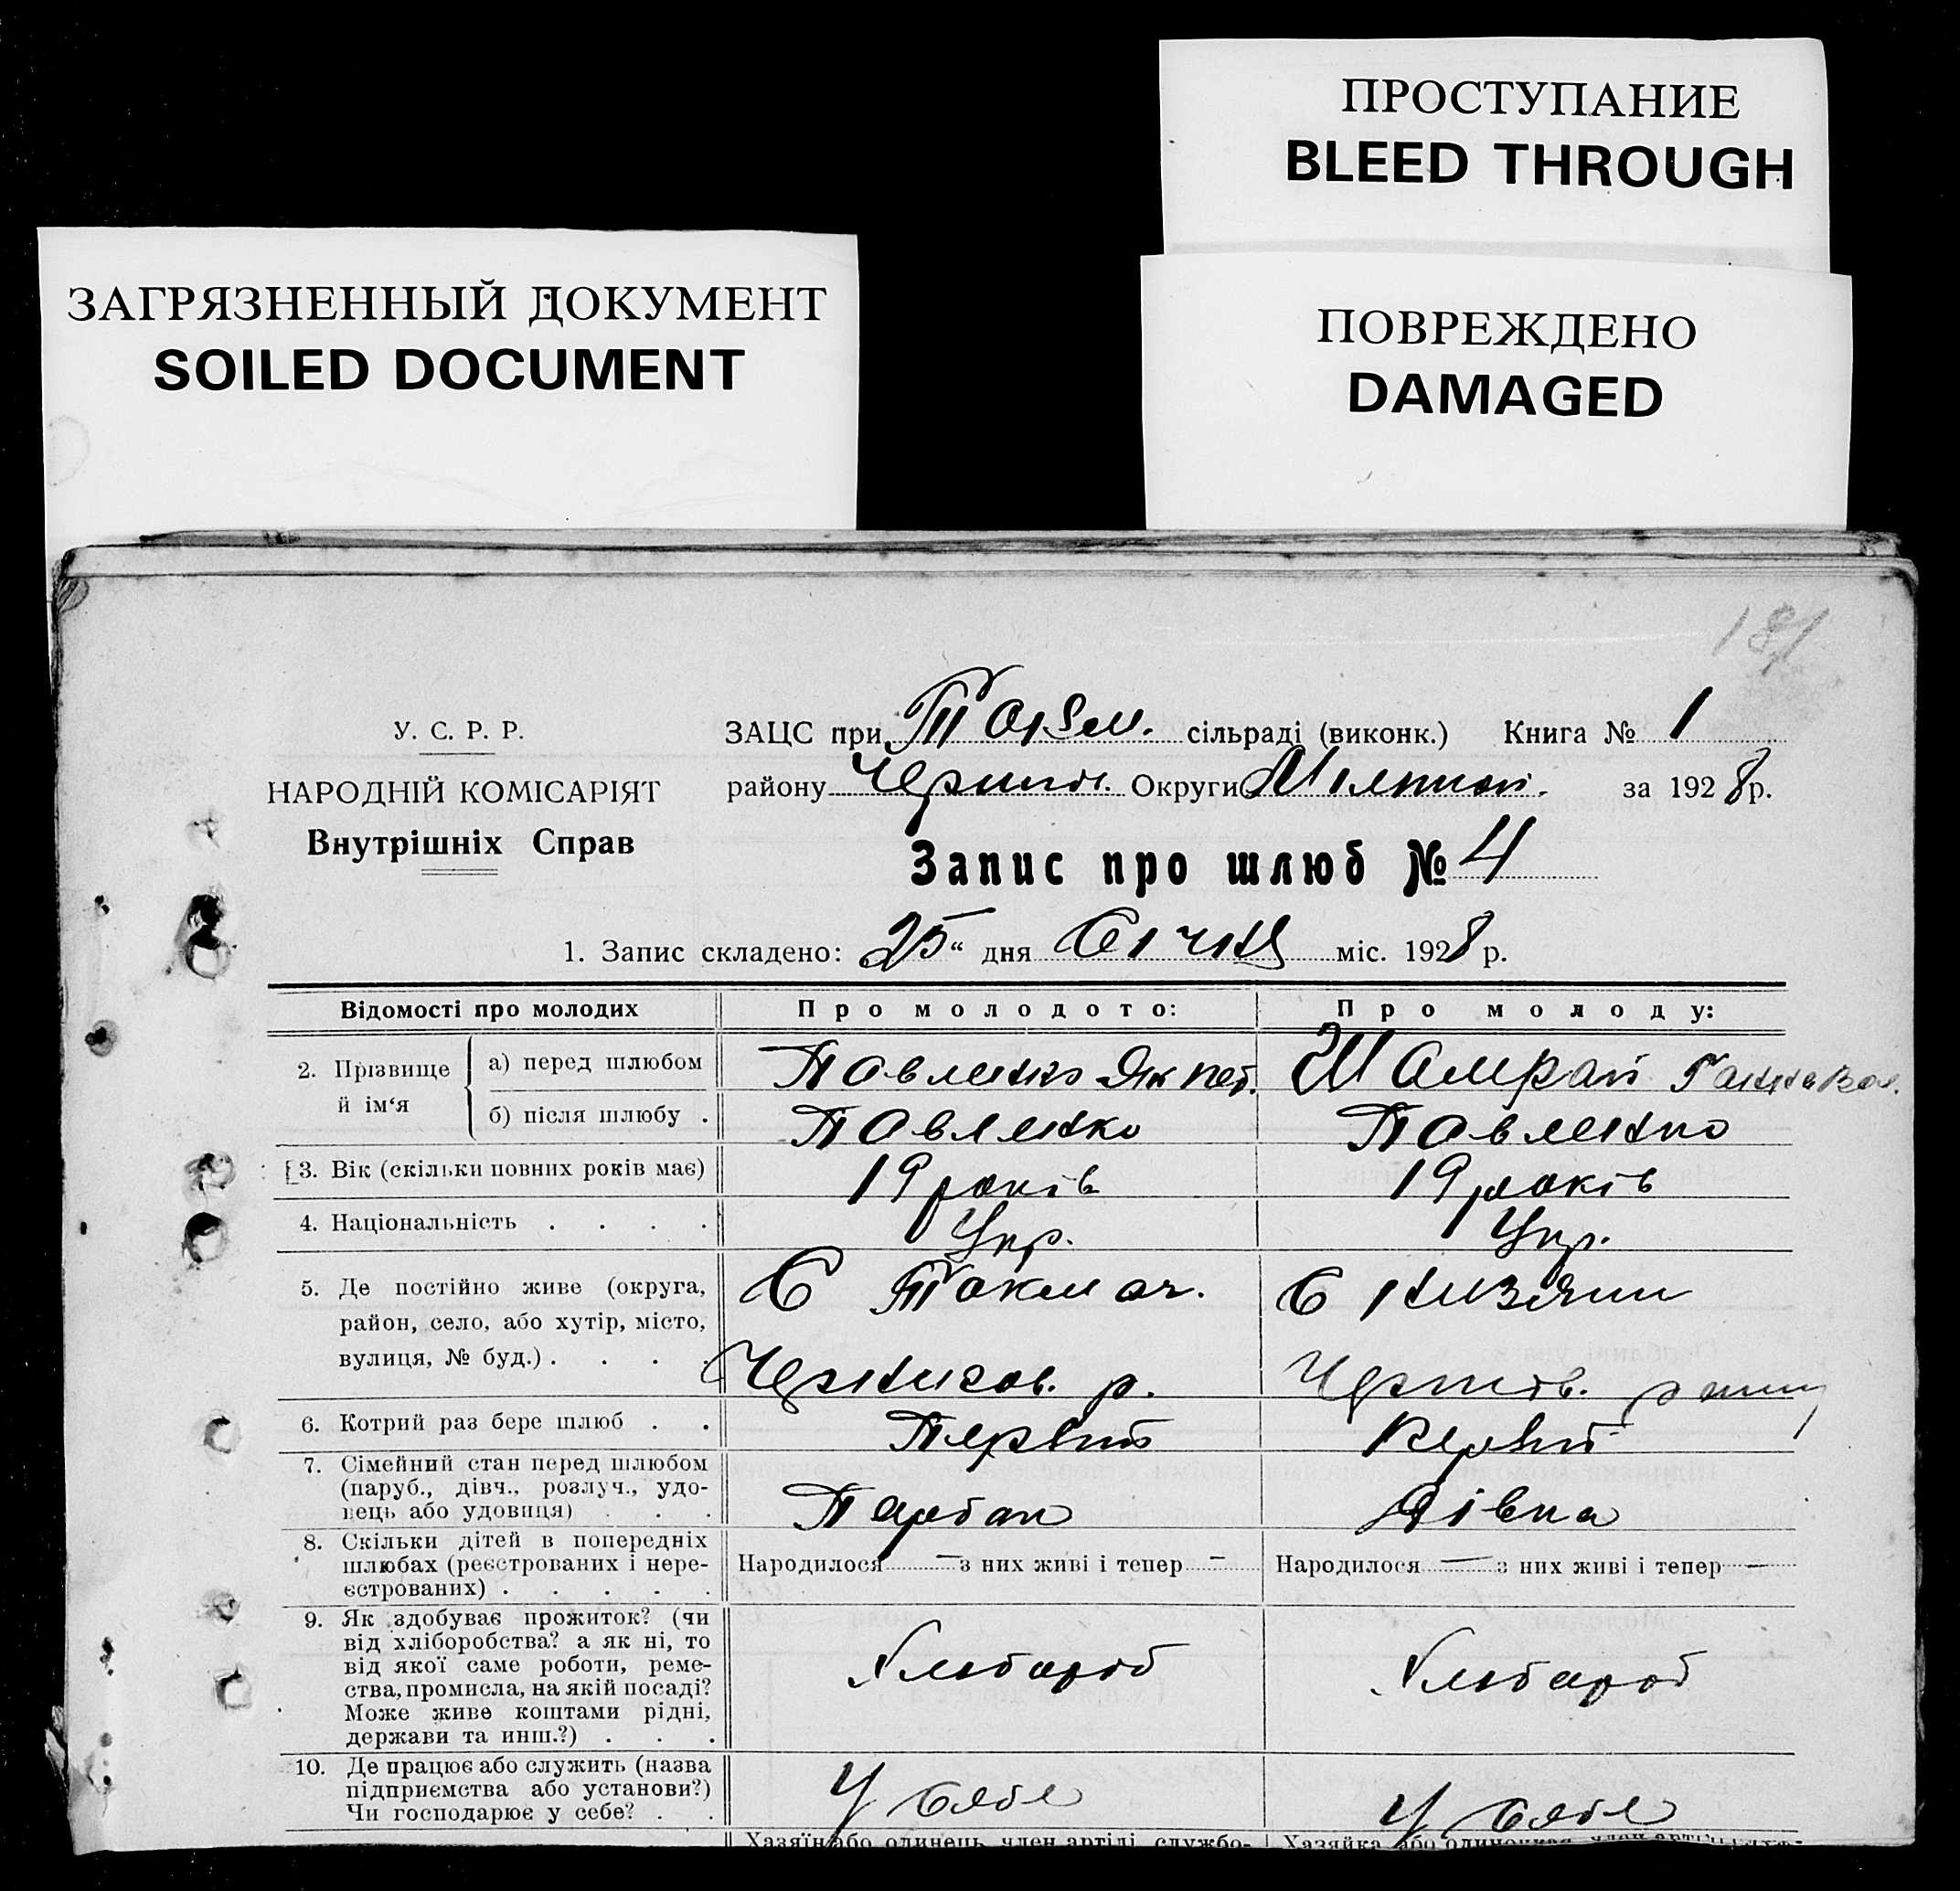 ПРОСТУПАНИЕ
BLEED THROUGH
ЗАГРЯЗНЕННЫЙ ДОКУМЕНТ
SOILED DOCUMENT
ПОВРЕЖДЕНО
DAMAGED
181
У. С. Р. Р.
ЗАЦС при Токм. сільраді (виконк.) Книга № 1
НАРОДНІЙ КОМІСАРІЯТ
району Округи за 1928 р.
Внутрішніх Справ
Запис про шлюб № 4
1. Запис складено: 25 " дня Січня міс. 1928 р.
Відомості про молодих
Про молодого:
Про молоду:
2. Прізвище й ім'я
а) перед шлюбом
Павленко Як Пет.
Шамрай Ганна
б) після шлюбу .
Павленко
Павленко
3. Вік (скільки повних років має)
19 років
19 років
4. Національність . . . .
Укр.
Укр.
5. Де постійно живе (округа,
район, село, або хутір, місто,
вулиця, № буд.) . . . .
С Токмач.
Чернигов. р.
С
6. Котрий раз бере шлюб . .
Первий
Первий
7. Сімейний стан перед шлюбом
(паруб., дівч., розлуч., удо-
вець або удовиця) . . .
Парбак
Дівка
8. Скільки дітей в попередніх
шлюбах (реєстрованих і нере-
єстрованих) . . . . .
Народилося — з них живі і тепер —
Народилося — з них живі і тепер —
9. Як здобуває прожиток? (чи
від хліборобства? а як ні, то
від якої саме роботи, реме-
ства, промисла, на якій посаді?
Може живе коштами рідні,
держави та инш.?) . . .
Хлебароб
Хлебароб
10. Де працює або служить (назва
підприємства або установи?)
Чи господарює у себе? . .
У себе
У себе
Хазяїн або одинець, член артілі, службо-
Хазяйка або